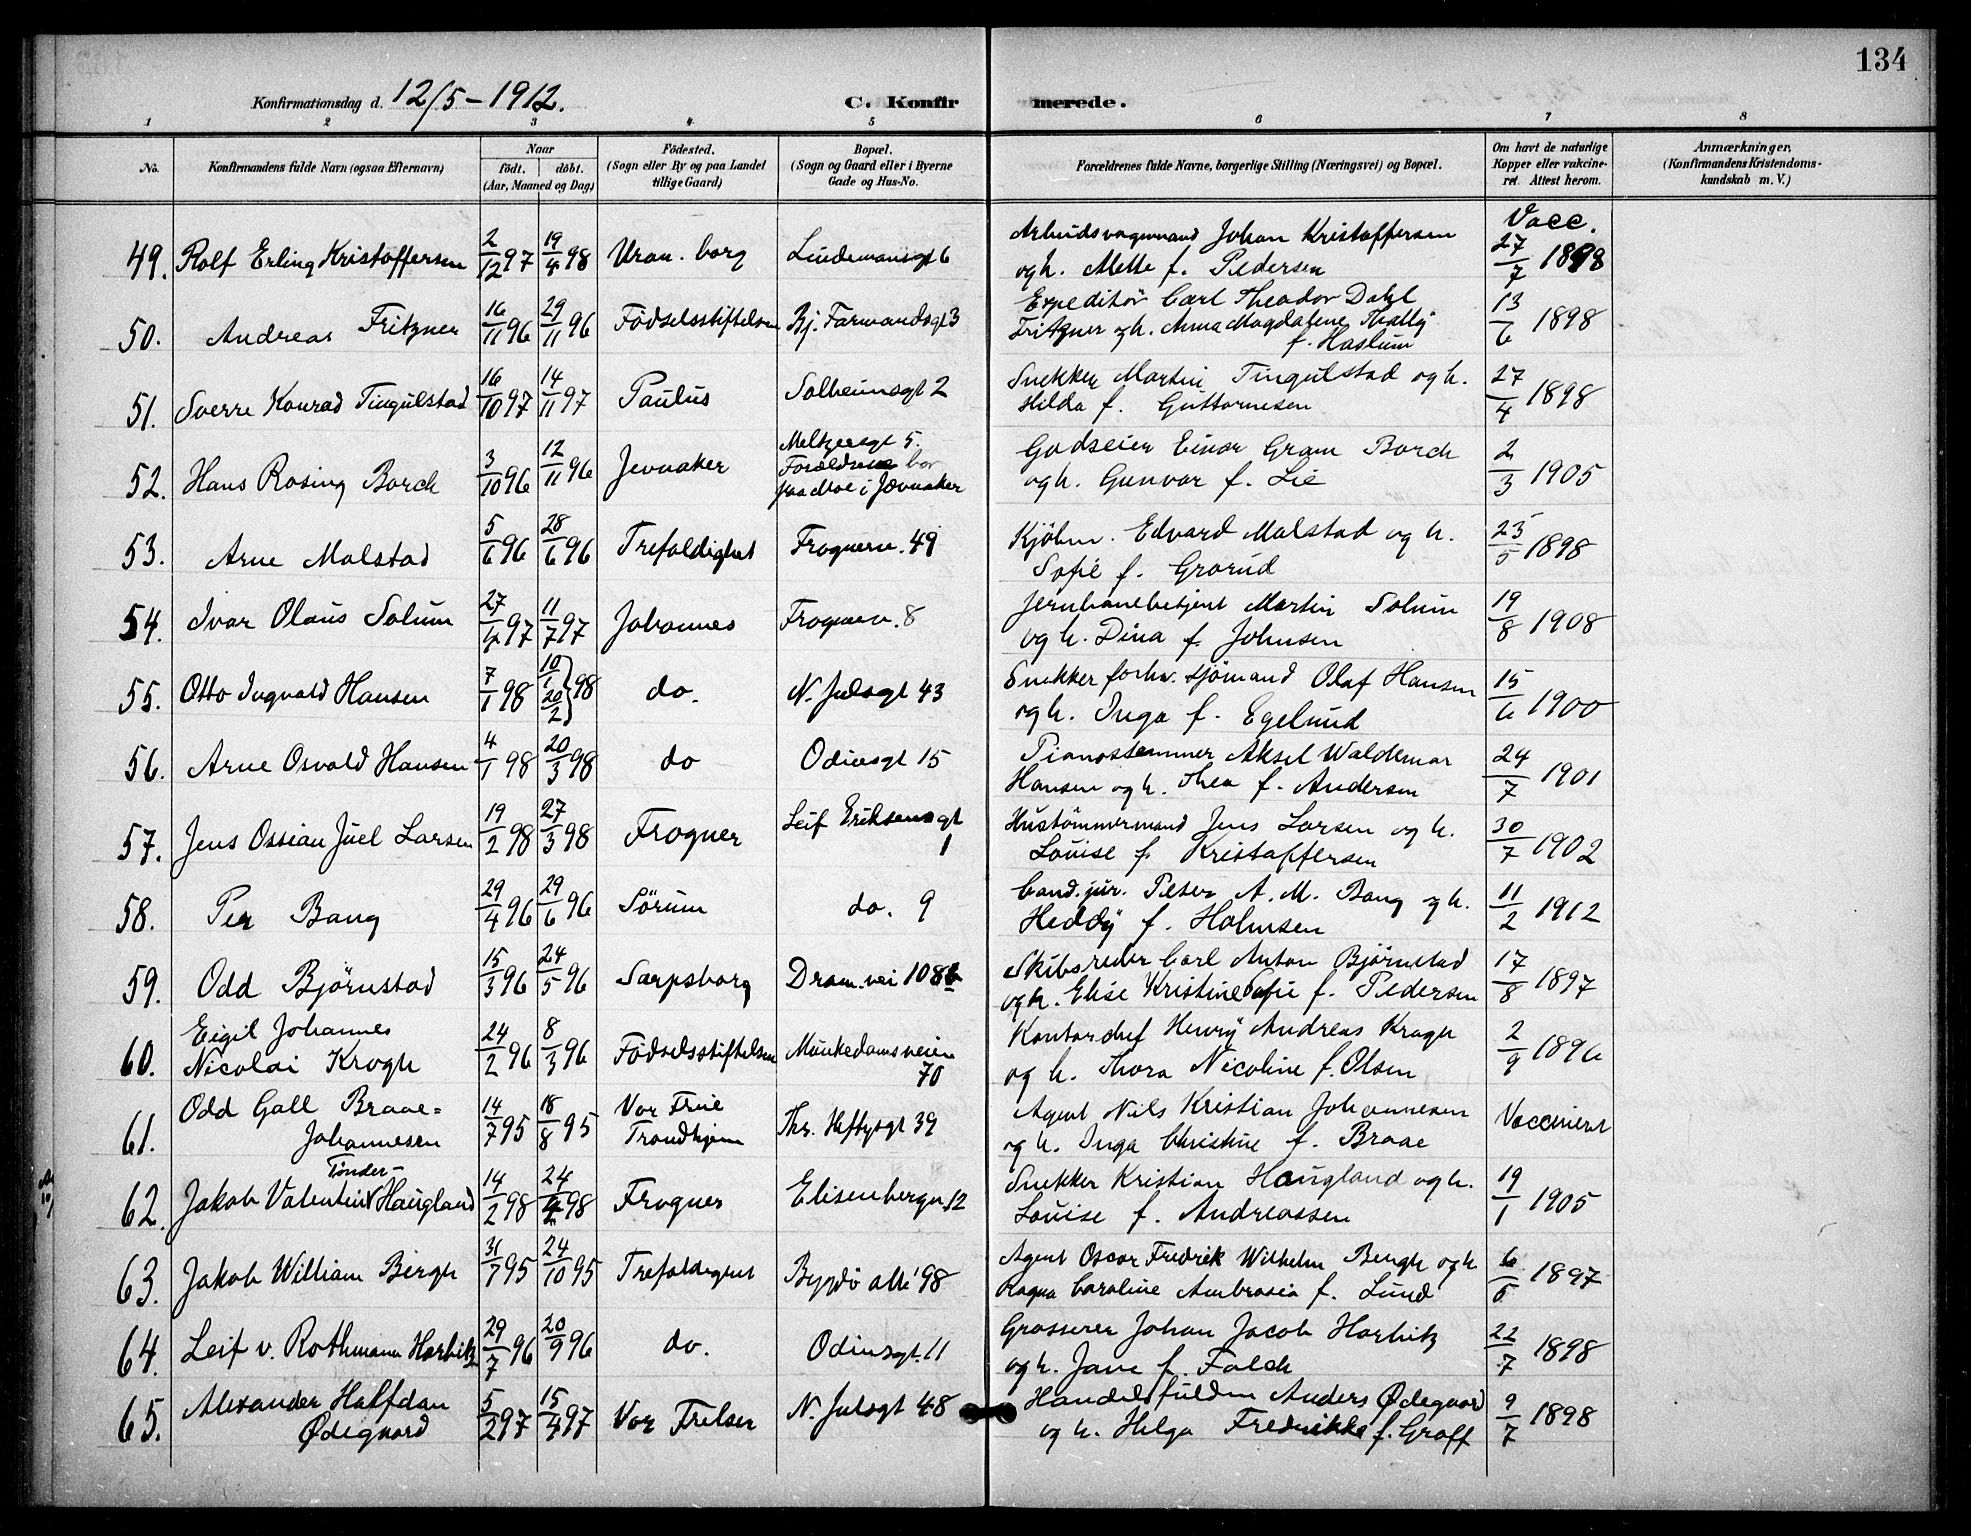 134
Konfirmationsdag d. 12/5 - 1912. C. Konfirmerede.
1 2 3 4 5 6 7 8
No. Konfirmandens fulde Navn (ogsaa Efternavn) Naar født. døbt. (Aar, Maaned og Dag) Fødested. (Sogn eller By og paa Landet tillige Gaard) Bopæl. (Sogn og Gaard eller i Byerne Gade og Hus-No. Forældrenes fulde Navne, borgerlige Stilling (Næringsvei) og Bopæl. Om havt de naturlige Kopper eller vakcineret. Attest herom. Anmærkninger, (Konfirmandens Kristendomskundskab m. V.)
49. Rolf Erling Kristoffersen 2/12 97 19/4 98 Uran.borg Lindemansgt 6 Arbeidsvognmand Johan Kristoffersen Vacc.
og h. Mette f. Pedersen 27/7 1898
50. Andreas Fritzner 16/11 96 29/11 96 Födselsstiftelsen Bj. Farmandsgt 3 Expeditör Carl Theodor Dahl 13/6 1898
Fritzner og h. Anna Magdalene Thally
f. Haslum
51. Sverre Konrad Tingulstad 16/10 97 14/11 97 Paulus Solheimsgt 2 Snekker Martin Tingulstad og h. 27/4 1898
Hilda f. Guttormesen
52. Hans Rosing Borch 3/10 96 12/11 96 Jevnaker Meltzersgt 5. Godseier Einar Gram Borch 2/3 1905
Forældrene bor og h. Gunvor f. Lie
paa Moe i Jævnaker
53. Arne Malstad 5/6 96 28/6 96 Trefoldighet Frognerv. 49 Kjöbm. Edvard Malstad og h. 25/5 1898
Sofie f. Grorud
54. Ivar Olaus Solum 27/4 97 11/7 97 Johannes Frognerv. 8 Jernbanebetjent Martin Solum 19/8 1908
og h. Dina f. Johnsen
55. Otto Ingvald Hansen 7/1 98 10/1 20/2 } 98 do. N. Julsgt 43 Snekker forhv. sjömand Olaf Hansen 15/6 1900
og h. Inga f. Egelund
56. Arne Osvald Hansen 4/1 98 20/3 98 do Odinsgt 15 Pianostemmer Aksel Waldemar 24/7 1901
Hansen og h. Thea f. Andersen
57. Jens Ossian Juel Larsen 19/2 98 27/3 98 Frogner Leif Eriksensgt 1 Hustömmermand Jens Larsen og h. 30/7 1902
Louise f. Kristoffersen
58. Per Bang 29/4 96 29/6 96 Sörum do. 9 Cand. jur. Peter A. M. Bang og h. 11/2 1912
Heddy f. Holmsen
59. Odd Björnstad 15/3 96 24/5 96 Sarpsborg Dram.vei 108 b Skibsreder Carl Anton Björnstad 17/8 1897
og h. Elise Kristine Sofie f. Pedersen
60. Eigil Johannes 24/2 96 8/3 96 Födselsstiftelsen Munkedamsveien 70 Kontorchef Henry Andreas Krogh 2/9 1896
Nicolai Krogh og h. Thora Nicoline f. Olsen
61. Odd Gall Braae= 14/7 95 18/8 95 Vor Frue Ths. Heftysgt 39 Agent Nils Kristian Johannesen Vaccineret
Johannesen Trondhjem og h. Inga Christine f. Braae
62. Jakob Valentin Tönder- Haugland 14/2 98 24/4 98 Frogner Elisenbergv. 12 Snekker Kristian Haugland og h. 19/1 1905
Louise f. Andreassen
63. Jakob William Bergh 31/7 95 24/10 95 Trefoldighet Bygdö allé 98 Agent Oscar Fredrik Wilhelm Bergh og h 6/5 1897
Ragna Caroline Ambrosia f. Lund
64. Leif v. Rothmann Harbitz 29/7 96 20/9 96 do. Odinsgt. 11 Grosserer Johan Jacob Harbitz 22/7 1898
og h. Jane f. Falch
65. Alexander Halfdan 5/2 97 15/4 97 Vor Frelser N. Julsgt 48 Handelsfuldm Anders Ödegaard 9/7 1898
Ödegaard og h. Helga Fredrikke f. Graff